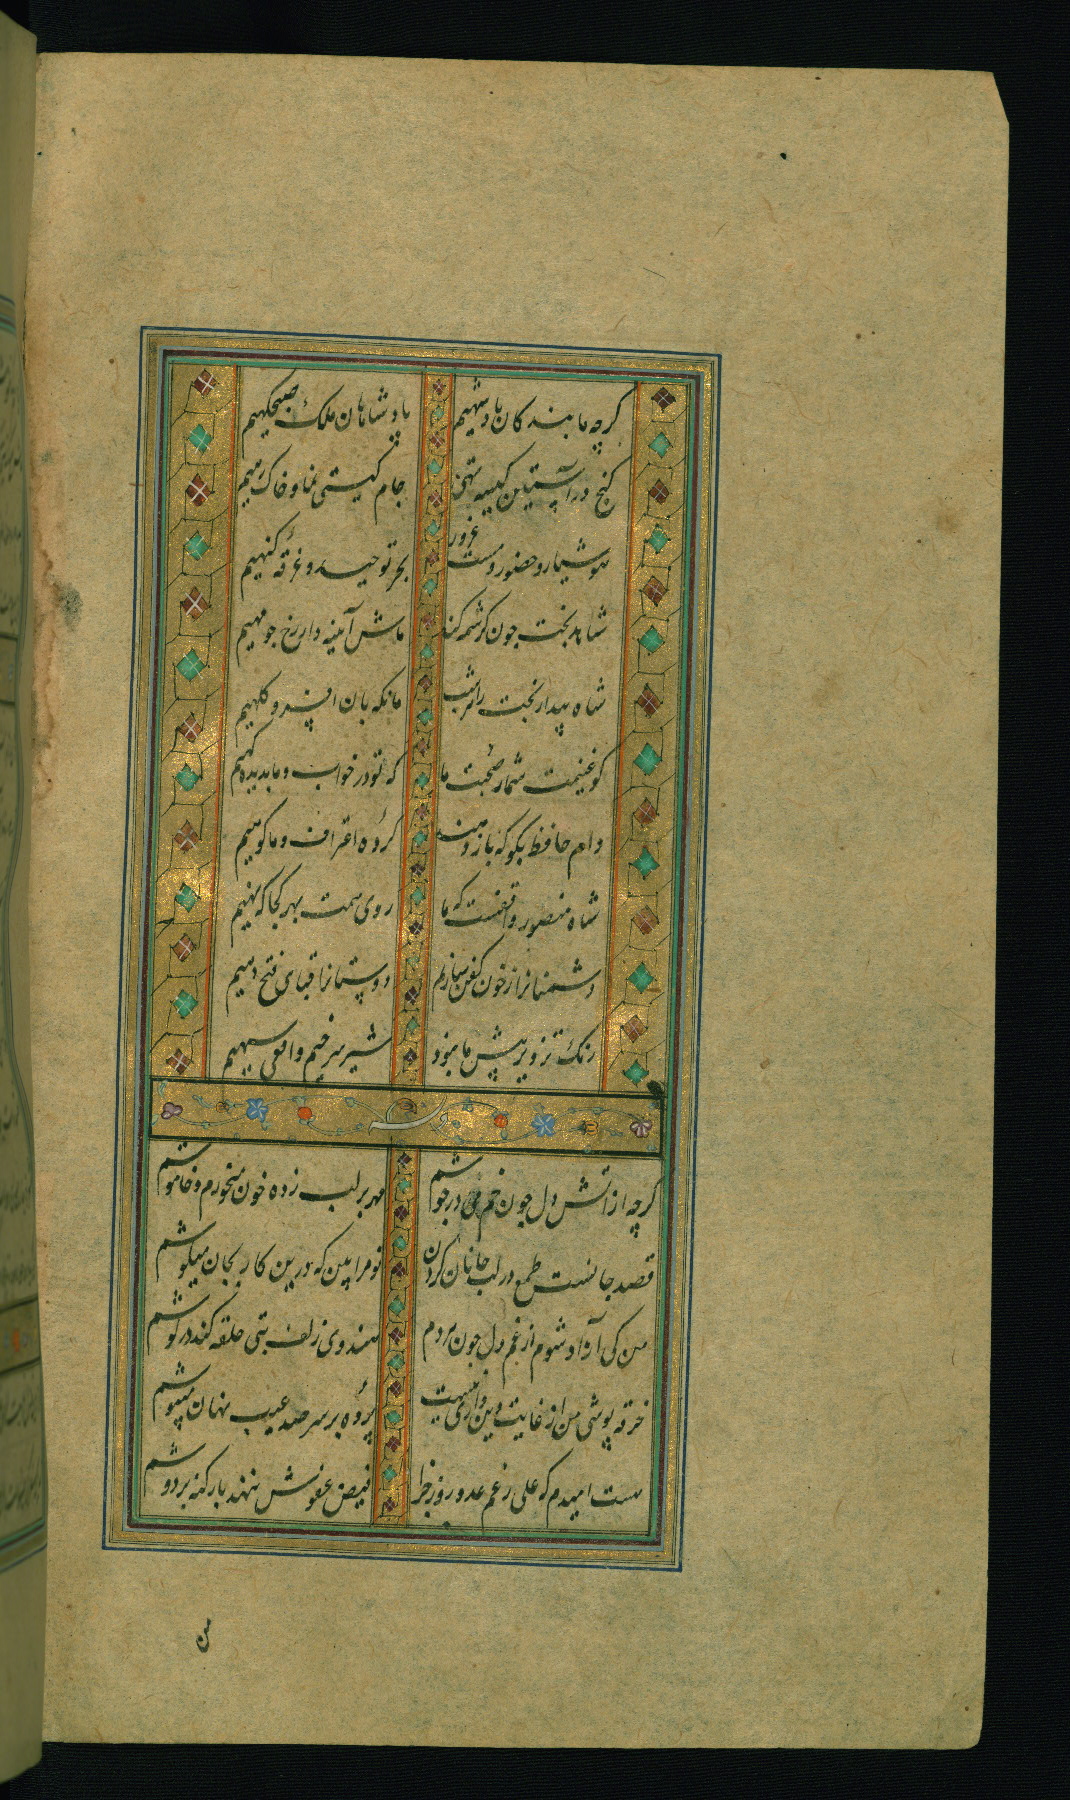 کرچه ما بندکان پادشهیم پادشاهان ملک صبحکهیم
کنج در آستین کیسه تهی جام کیتی نما و خاک رهیم
هوشیار و حضور و مست غرور بحر توحید و غرقه کنهیم
شاهد بخت چون کرشمه کند ماش آیینه دار رخ چو مهیم
شاه بیدار بخت را هر شب ما نکهبان افسر و کلهیم
کو غنیمت شمار صحبت ما که تو در خواب و ما بدیده کهیم
وام حافظ بکو که باز دهند کرده اعتراف و ما کوهیم
شاه منصور واقفست که ما روی همت بهر کجا که نهیم
دشمنانرا ز خون کفن سازیم دوستانرا قبای فتح دهیم
رنک تزویر پیش ما نبود شیر سرخیم و افعی سیهیم
کرچه از آتش دل چون خم می در جوشم مهر بر لب زده خون میخورم و خاموشم
قصد جانست طمع در لب جانان کردن تو مرا بین که درین کار بجان میکوشم
من کی آزاد شوم از غم دل چون هر دم هندوی زلف بتی حلقه کند در کوشم
خرقه پوشی من از غایت دین داری نیست پرده بر سر صد عیب نهان میپوشم
هست امیدم که علی رغم عدو روز جزا فیض عفوش ننهد بار کنه بر دوشم
من